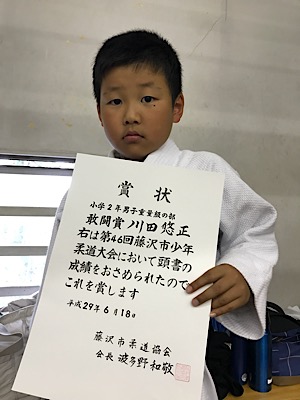 賞状
小学2年男子重量級の部
敢闘賞 川田悠正
右は第46回藤沢市少年
柔道大会において頭書の
成績をおさめられたので
これを賞します
平成29年6月18日
藤沢市柔道協会
会長 波多野和敬